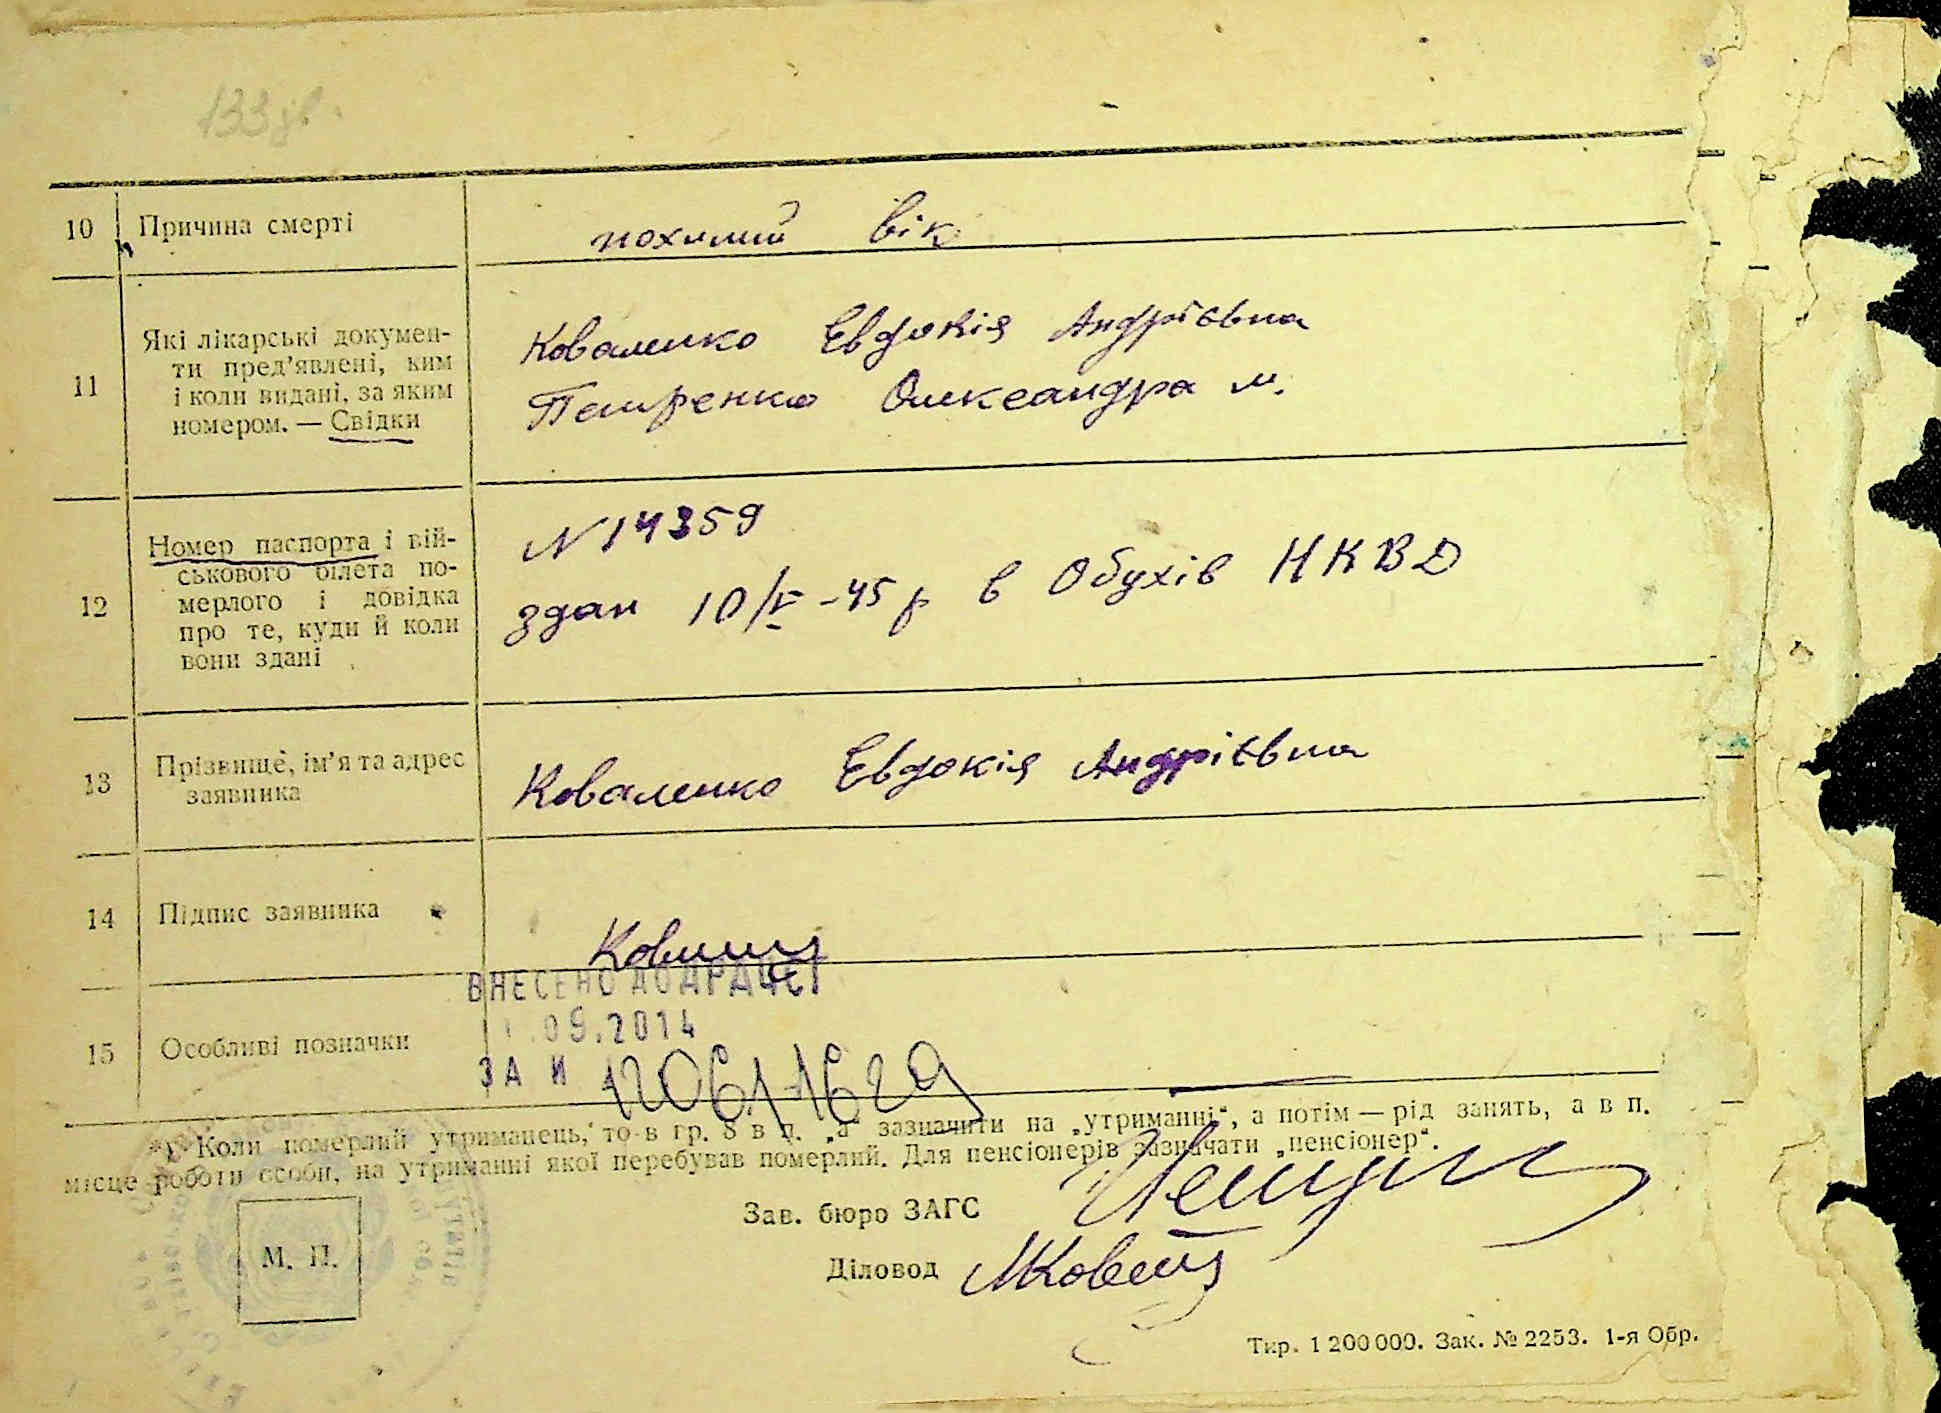 133 зв.
10 Причина смерті похилий вік
11 Які лікарські докумен-
ти пред'явлені, ким
і коли видані, за яким
номером. — Свідки
Коваленко Евдокія Андріївна
Петренко Олександра М.
12 Номер паспорта і вій-
ськового білета по-
мерлого і довідка
про те, куди й коли
вони здані
N 14359
здан 10/V -45 р в Обухів НКВД
13 Прізвище, ім'я та адрес
заявника
Коваленко Евдокія Андріївна
14 Підпис заявника
ВНЕСЕНО ДО ДРАЦСГ
.09.2014
15 Особливі позначки
ЗА И 12061-1629
*) Коли померлий утриманець, то в гр. 8 в п. „а“ зазначити на „утриманні“, а потім — рід занять, а в п.
місце роботи особи, на утриманні якої перебував померлий. Для пенсіонерів зазначати „пенсіонер“.
Зав. бюро ЗАГС
М. П.
Діловод
Тир. 1 200 000. Зак. № 2253. 1-я Обр.